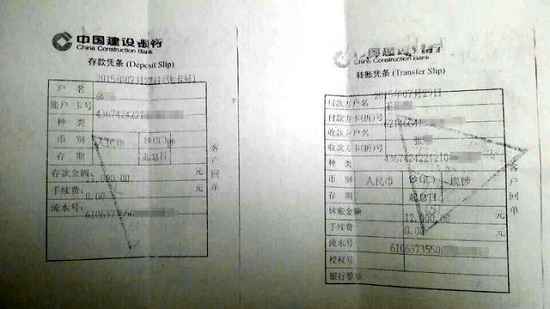 中国建设银行
China Construction Bank
存款凭条 (Deposit Slip)
户 名
账户 卡号
436742422
种 类
币 别 人民币 钞
存 期 起息日
存款金额: 000.00 元
手续费: 0.00 元
流水号 6106373550
客户回单
国建设
China Construction Bank
转账凭条 (Transfer Slip)
2015年07月29日
付款方户名
付款方卡(折)号
收款方户名 张
收款方卡(折)号
种 类 4367424221210
币 别 人民币 钞(汇) 现钞
存 期 起息日
转账金额 12,000.00 元
手续费 0.00 元
流水号 6106373550
授权号
银行签章
客户回单